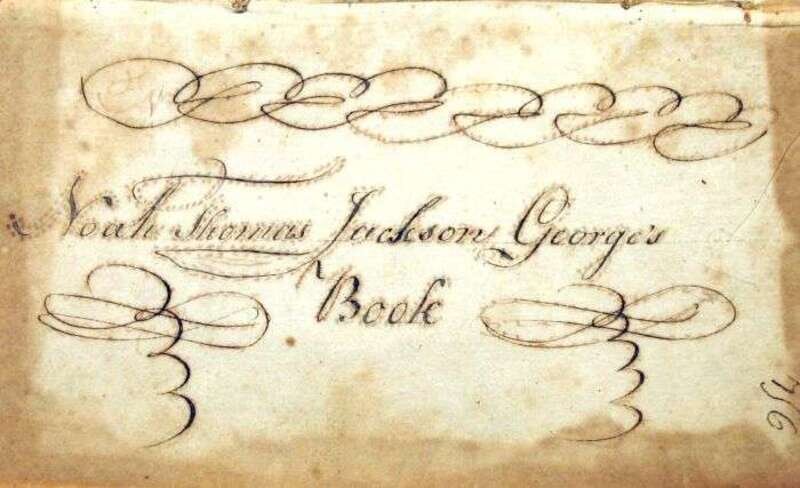 Noah Thomas Jackson George's
Book